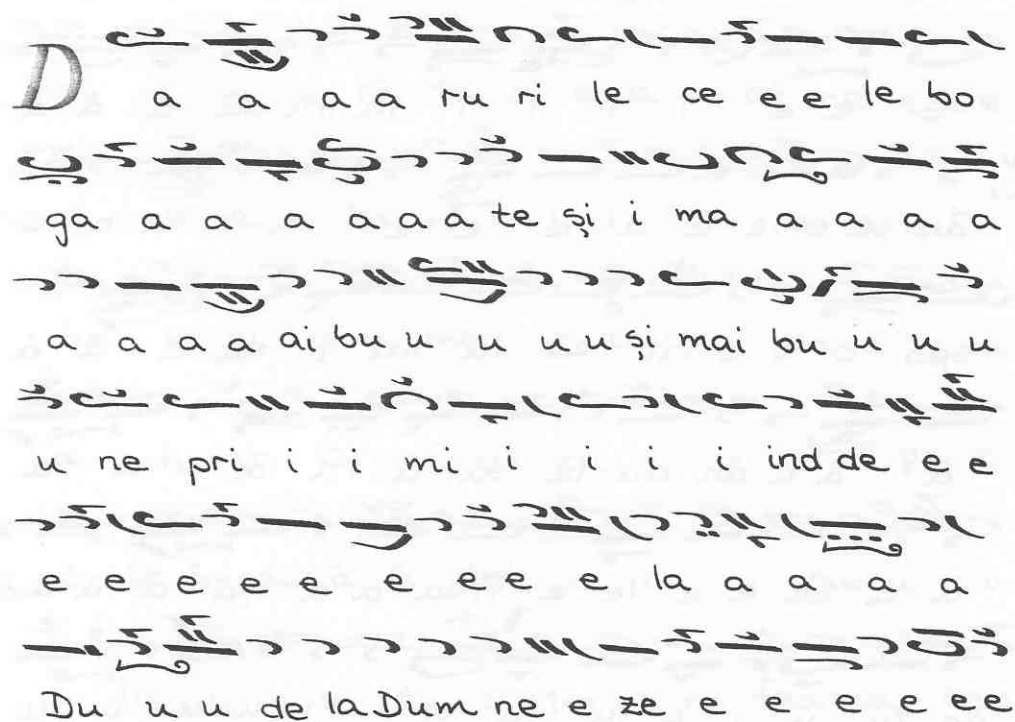 D a a a a ru ri le ce e e le bo
ga a a a a a a te și i ma a a a a
a a a a ai bu u u u u și mai bu u u u
u ne pri i i mi i i i i ind de e e
e e e e e e e e e la a a a a
Du u u de la Dum ne e ze e e e e ee